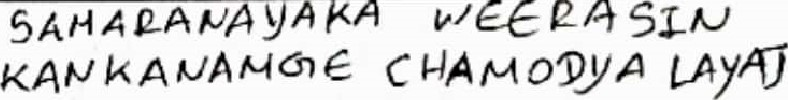 SAMARANAYAKA WEERASIN
KANKANAMGE CHAMODYA LAYAT